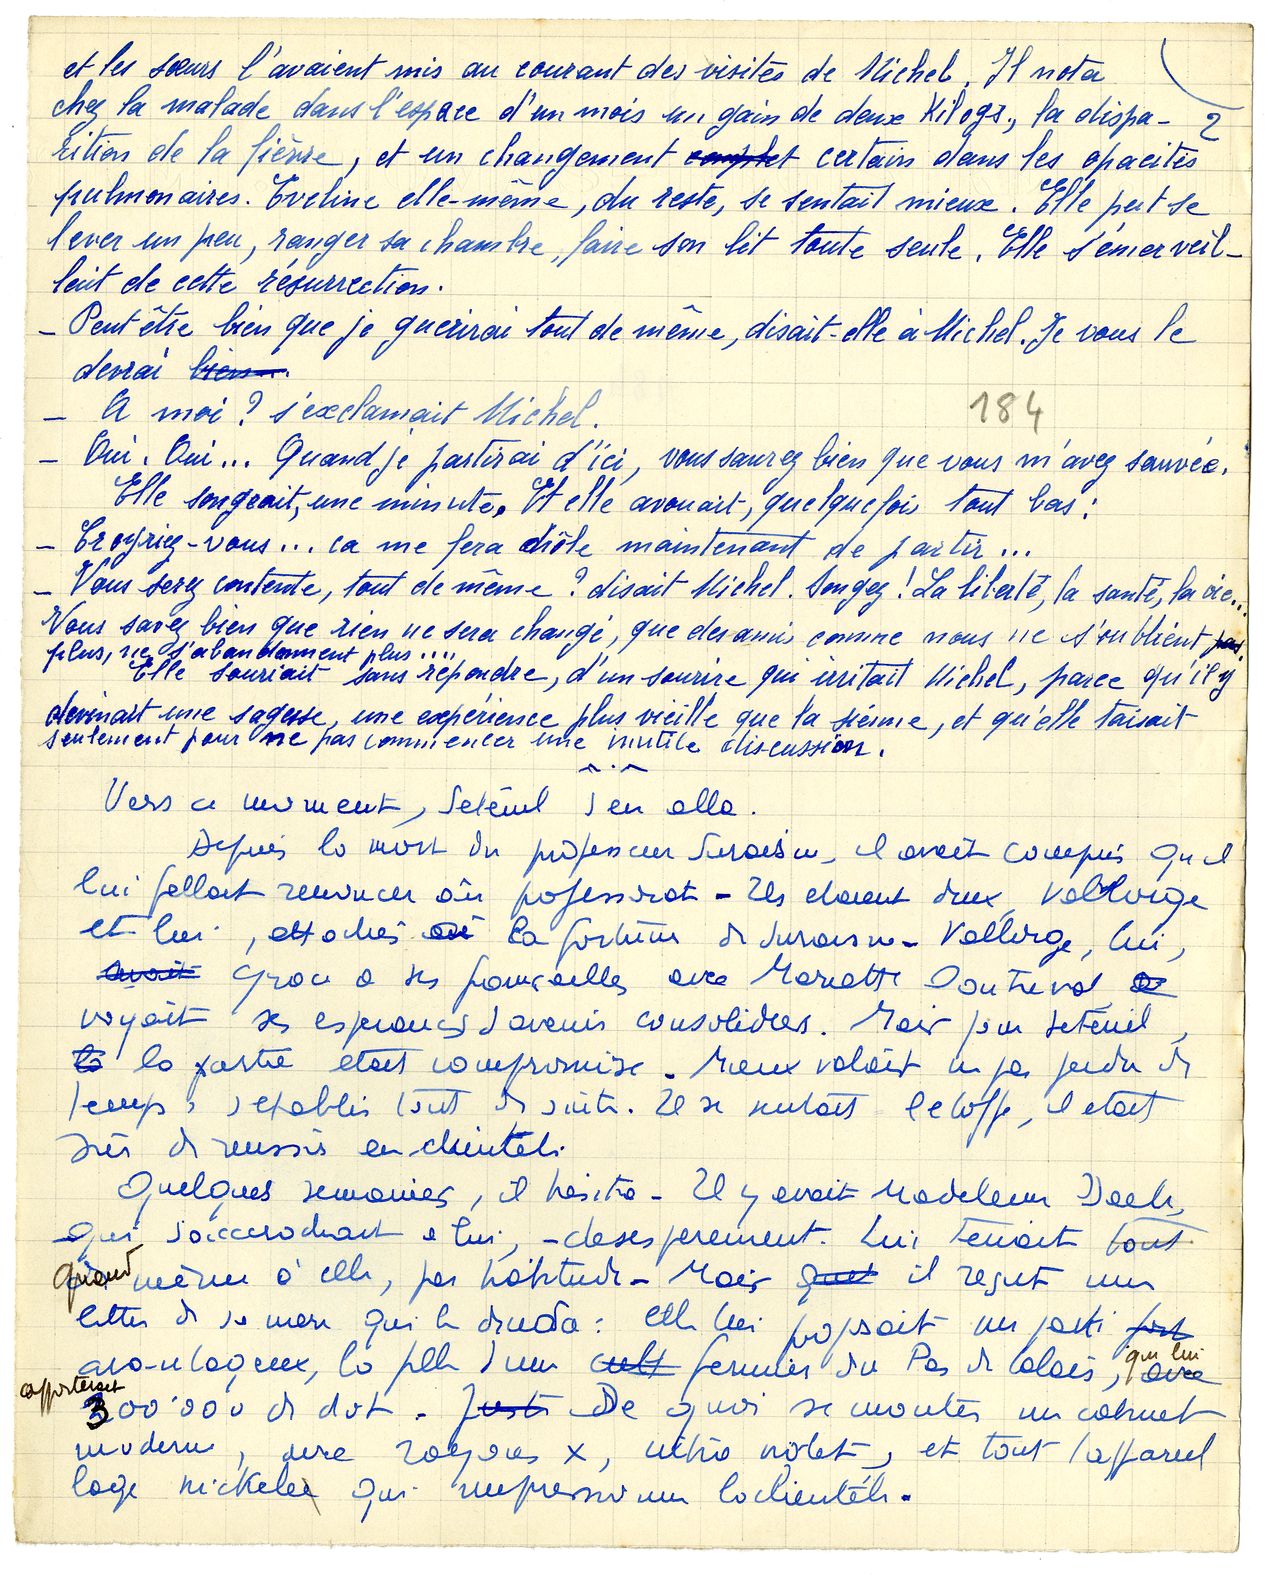 et les sœurs l'avaient mis au courant des visites de Michel. Il nota
chez la malade dans l'espace d'un mois un gain de deux Kilogs., la dispa-
2
rition de la fièvre, et un changement complet certain dans les opacités
pulmonaires. Eveline elle-même, du reste, se sentait mieux. Elle put se
lever un peu, ranger sa chambre, faire son lit toute seule. Elle s'émerveil-
lait de cette résurrection.
– Peut être bien que je guérirai tout de même, disait-elle à Michel. Je vous le
devrai bien
– A moi ? s'exclamait Michel.
184
– Oui. Oui... Quand je partirai d'ici, vous saurez bien que vous m'avez sauvée.
Elle songeait, une minute. Et elle avouait, quelquefois tout bas :
– Croyriez-vous... ca me fera drôle maintenant de partir...
– Vous serez contente, tout de même ? disait Michel. Songez ! La liberté, la santé, la vie...
Vous savez bien que rien ne sera changé, que des amis comme nous ne s'oublient pas
plus, ne s'abandonnent plus....
Elle souriait sans répondre, d'un sourire qui irritait Michel, parce qu'il y
devinait une sagesse, une expérience plus vieille que la sienne, et qu'elle taisait
seulement pour ne pas commencer une inutile discussion.
Vers ce moment, Seteuil s'en alla.
Depuis la mort du professeur Suraisne, il avait compris qu'il
lui fallait renoncer au professorat – Ils etaient deux, Vallorge
et lui, attachés à la fortune de Suraisne – Vallorge, lui,
avait grace a ses fiançailles avec Mariette Doutreval
voyait ses esperances d'avenir consolidées. Mais pour Seteuil,
la la partie etait compromise – Mieux valait ne pas perdre de
temps, s'etablir tout de suite. Il se sentait l'etoffe, il etait
sûr de reussir en clientele.
Quelques semaines, il hesita – Il y avait Madeleine Daele,
qui s'accrochait a lui, – desesperement. Lui tenait tout
quand même à elle, par habitude – Mais il reçut une
lettre de sa mere qui le decida : elle lui proposait un parti fort
avantageux, la fille d'un cult fermier du Pas de Calais, qui lui avec
apporterait
300.000 de dot – Juste De quoi se monter un cabinet
moderne, avec rayons X, ultra violets, et tout l'appareil
lage nickelé qui impressionne la clientèle.